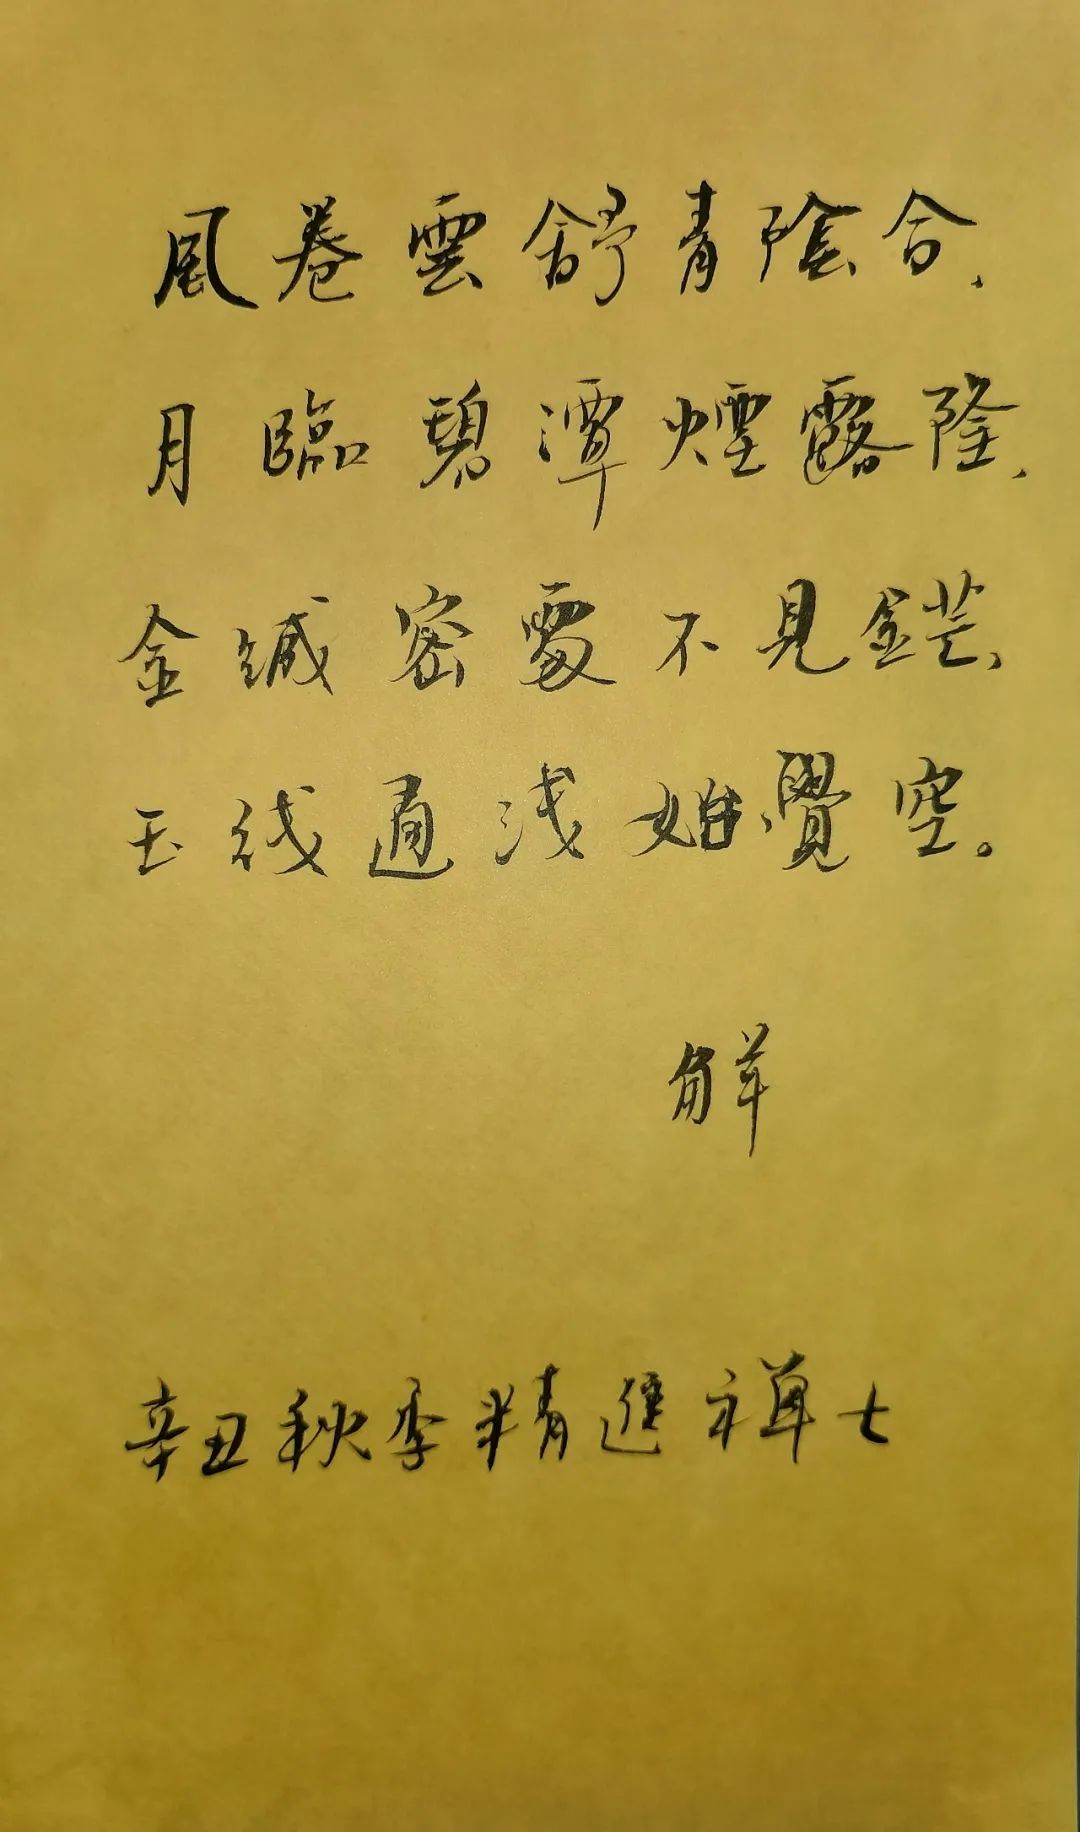 風卷雲舒青陰合，
月臨碧潭煙露隆，
金缄密處不見鋩，
玉线通浅始覺空。
辛丑秋季精進禅七